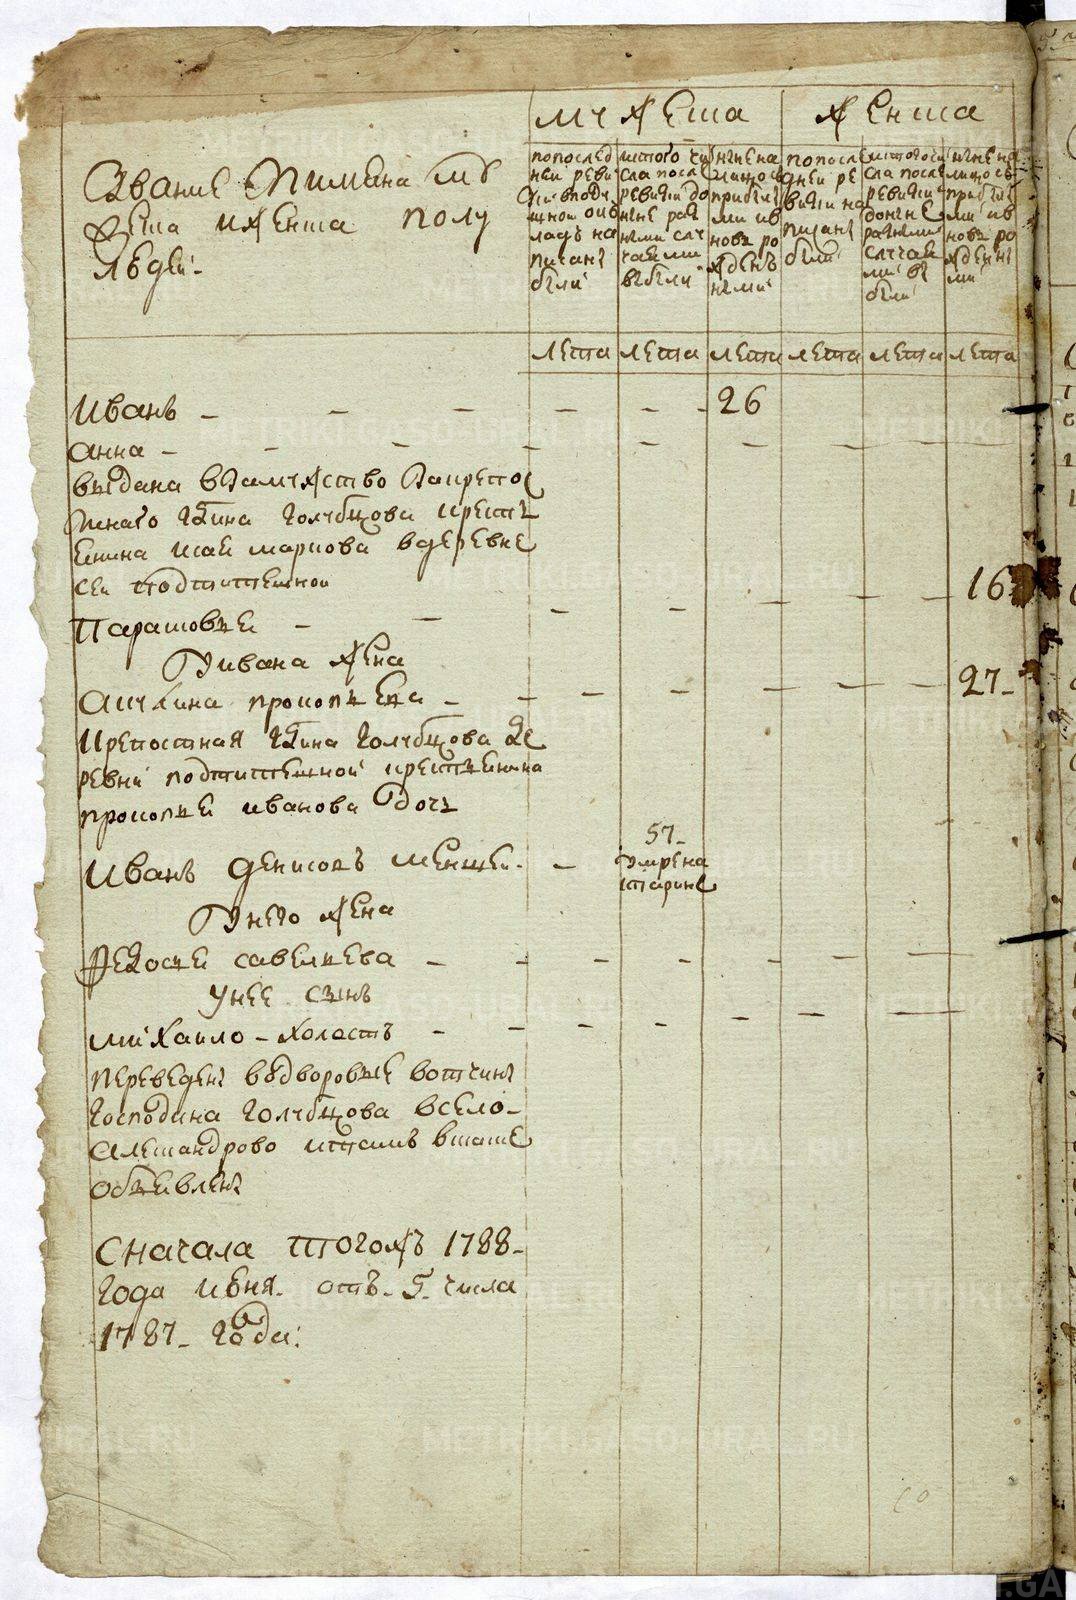 мужеска женска
Звание и имяна му
жеска и женска полу
людей.
по послед ней ревизии в подушном окладъ написаны были
ис того числа после ревизии до ныне разными случаями выбыли
ныне на лицо с прибылыми и вновь рожденными
по последней ревизии написаны были
ис того числа после ревизии до ныне разными случаями выбыли
ныне на лицо с прибылыми и вновь рожденными
лета лета лета лета лета лета
Иванъ - 26
анна -
выдана взамужство закрепос
наго гдина Голубцова крестъ
янина исаи маркова вдеревне
сеи
16
Парасковьи -
Уивана жена
акулина прокопьева - 27-
крепостная гдина Голубцова де
ревни крестьянина
прокопьи иванова дочь
57-
Иванъ денисовъ меншеи. -
умре на
старине
Унего жена
Федосьи савельева -
унее сынъ
михаило - холостъ -
переведенъ вдворовые вотчины
господина Голубцова всело-
александрово итамъ всказке
объявленъ
сначала тогожъ 1788-
года июня. отъ. 5. числа
1787- года: